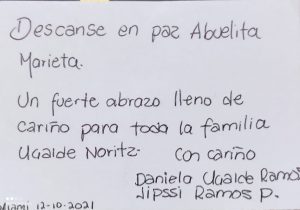 Descanse en paz Abuelita
Marieta.
Un fuerte abrazo lleno de
cariño para toda la familia
Ugalde Noritz. Con cariño
Daniela Ugalde Ramos
Jipssi Ramos P.
Miami 12-10-2021